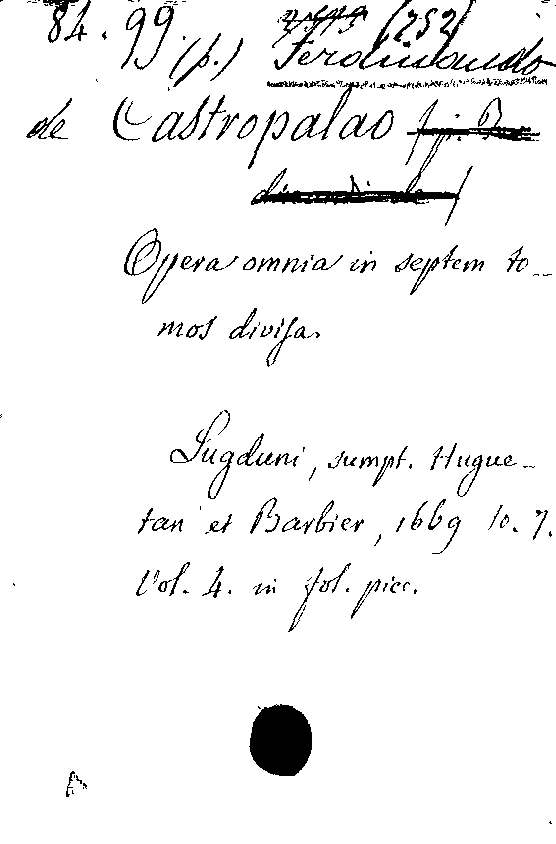 84.99. (252)
(p.) Ferdinando
de Castropalao
Opera omnia in septem to-
mos divisa.
Lugduni, sumpt. Hugue-
tan et Barbier, 1669 to. 7.
Vol. 4. in fol. picc.